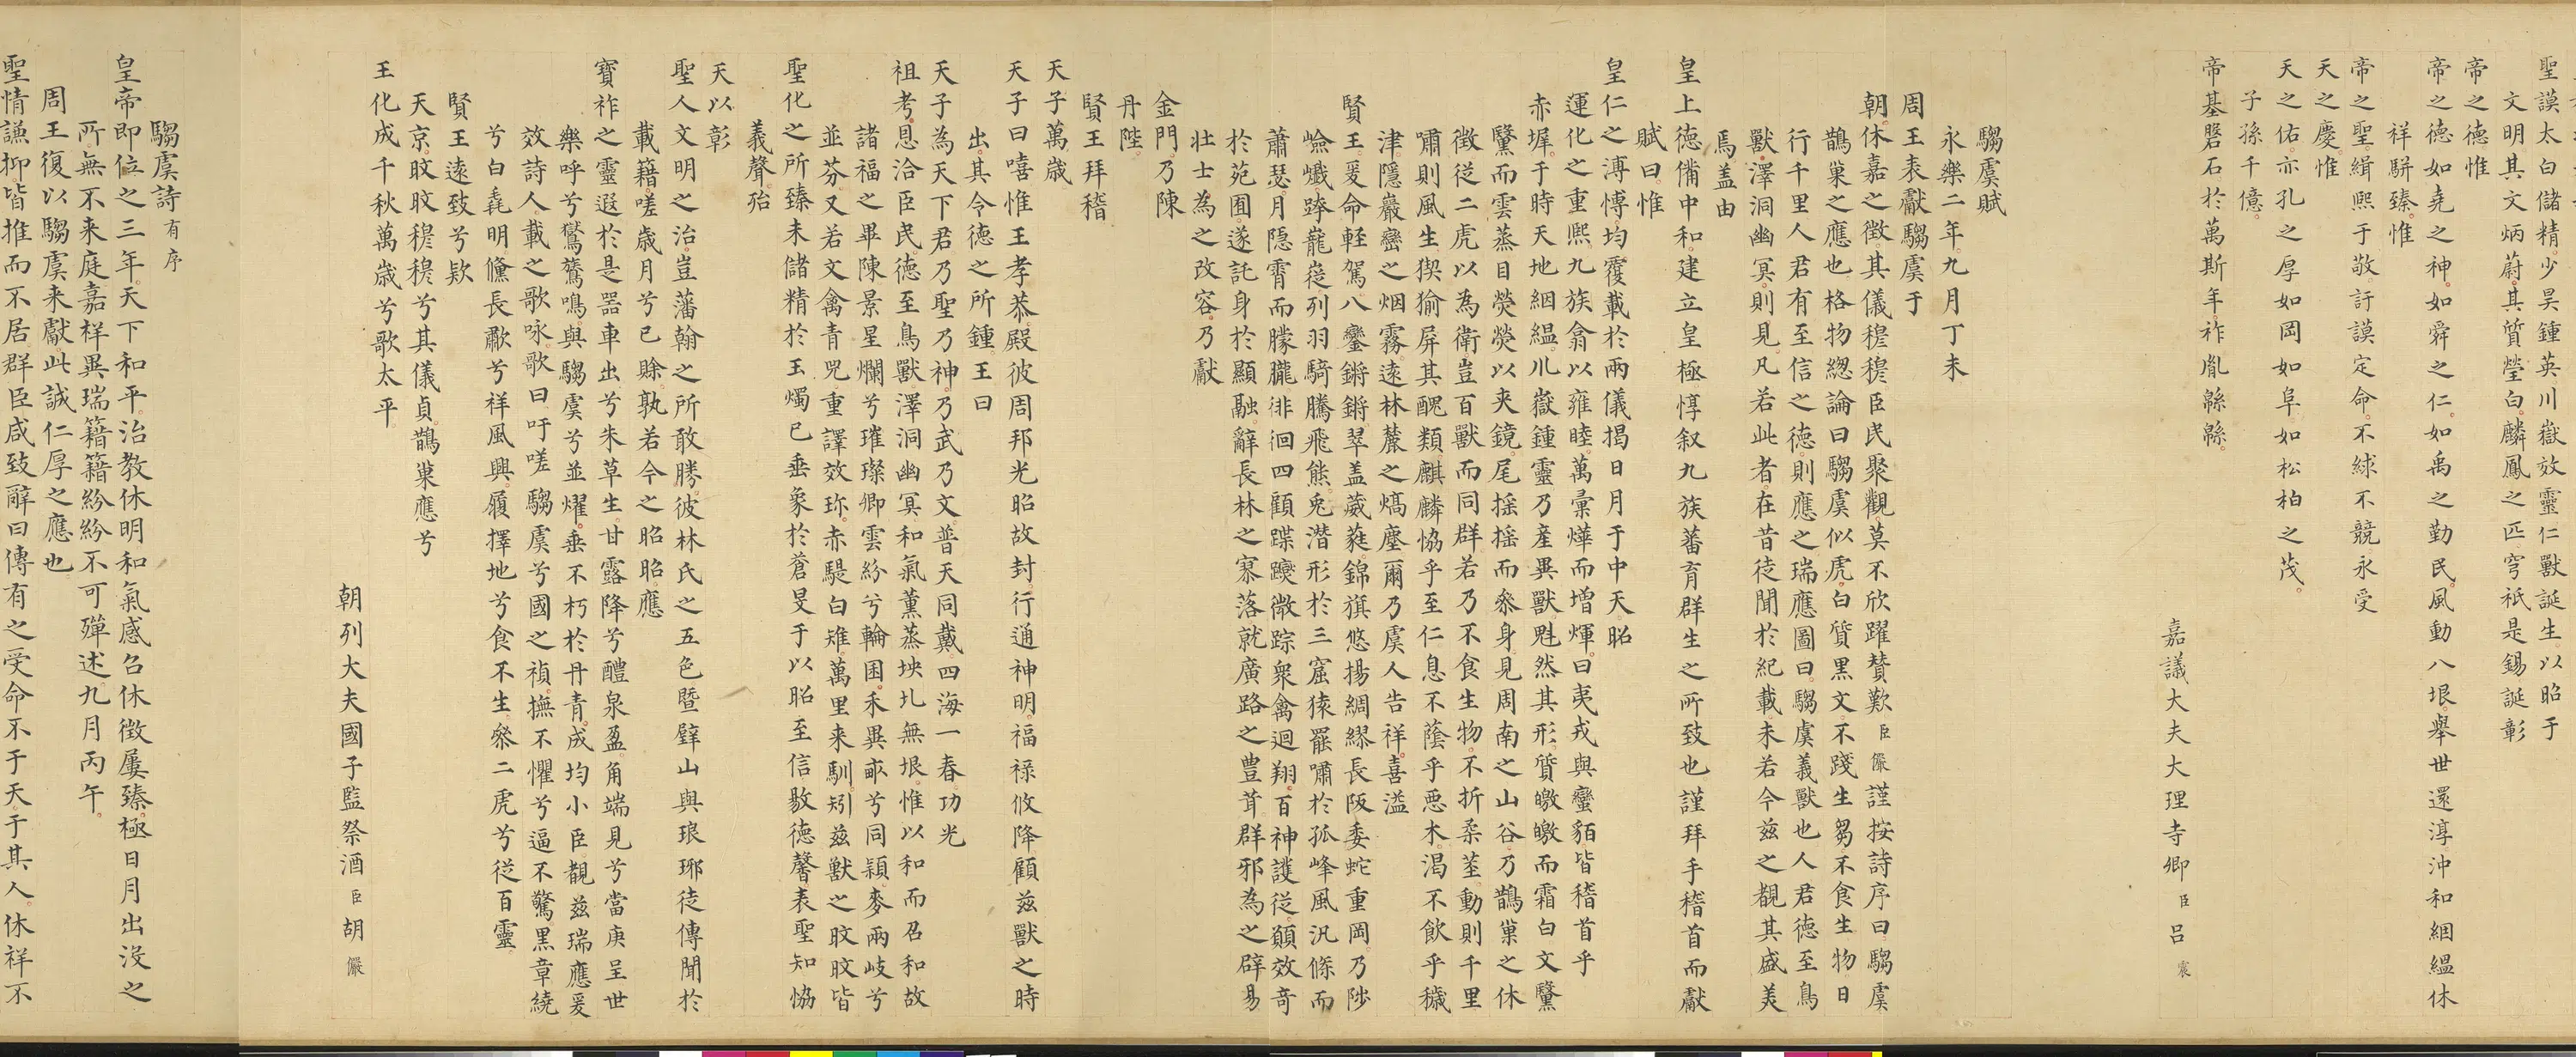 聖謨太白儲精少昊鍾英川嶽效靈仁獸誕生以昭于
文明其文炳蔚其質瑩白麟鳳之匹穹祇是錫誕彰
帝之德惟
帝之德如堯之神如舜之仁如禹之勤民風動八垠舉世還淳沖和絪縕休
祥駢臻惟
帝之聖緝熙于敬訏謨定命不絿不競永受
天之慶惟
天之佑亦孔之厚如岡如阜如松柏之茂
子孫千億
帝基磐石於萬斯年祚胤緜緜
嘉議大夫大理寺卿臣呂震
騶虞賦
永樂二年九月丁未
周王表獻騶虞于
朝休嘉之徵其儀穆穆臣民聚觀莫不欣躍贊歎臣儼謹按詩序曰騶虞
鵲巢之應也格物總論曰騶虞似虎白質黑文不踐生芻不食生物日
行千里人君有至信之德則應之瑞應圖曰騶虞義獸也人君德至鳥
獸澤洞幽冥則見凡若此者在昔徒聞於紀載未若今茲之覩其盛美
焉盖由
皇上德備中和建立皇極惇叙九族蕃育群生之所致也謹拜手稽首而獻
賦曰惟
皇仁之溥博均覆載於兩儀揭日月于中天昭
運化之重熙九族翕以雍睦萬彙燁而增煇曰夷戎與蠻貊皆稽首乎
赤墀于時天地絪縕川嶽鍾靈乃產異獸魁然其形質皦皦而霜白文黳
黳而雲蒸目熒熒以夾鏡尾摇摇而叅身見周南之山谷乃鵲巢之休
徵從二虎以為衛豈百獸而同群若乃不食生物不折柔莖動則千里
嘯則風生猰㺄屏其醜類麒麟恊乎至仁息不蔭乎惡木渴不飲乎穢
津隱巖巒之烟霧遠林麓之熇塵爾乃虞人告祥喜溢
賢王爰命輕駕八鑾鏘鏘翠盖葳蕤錦旗悠揚綢繆長阪委蛇重岡乃陟
嶮巇跨巃嵸列羽騎騰飛熊兎潛形於三窟猿罷嘯於孤峰風汎條而
蕭瑟月隠霄而朦朧徘徊四顧蹀躞微踪衆禽迴翔百神護從顓效奇
於苑囿遂託身於顯融辭長林之寥落就廣路之豊茸群邪為之辟易
壮士為之改容乃獻
金門乃陳
丹陛
賢王拜稽
天子萬歲
天子曰嘻惟王孝恭殿彼周邦光昭故封行通神明福禄攸降顧茲獸之時
出其令德之所鍾王曰
天子為天下君乃聖乃神乃武乃文普天同戴四海一春功光
祖考恩洽臣民德至鳥獸澤洞幽冥和氣薰蒸坱圠無垠惟以和而召和故
諸福之畢陳景星爛兮璀璨卿雲紛兮輪囷禾異畝兮同穎麥兩岐兮
並芬又若文禽青兕重譯效珎赤騠白雉萬里来馴矧茲獸之旼旼皆
聖化之所臻未儲精於玉燭已垂象於蒼旻于以昭至信敭德馨表聖知恊
義聲殆
天以彰
聖人文明之治豈藩翰之所敢勝彼林氏之五色暨壁山與琅琊徒傳聞於
載籍嗟歲月兮已賒孰若今之昭昭應
寶祚之靈遐於是噐車出兮朱草生甘露降兮醴泉盈角端見兮當庚呈世
樂呼兮鸑鷟鳴與騶虞兮並燿垂不朽於丹青成均小臣覩茲瑞應爰
效詩人載之歌咏歌曰吁嗟騶虞兮國之禎撫不懼兮逼不驚黑章繞
兮白毳明儵長歗兮祥風興履擇地兮食不生叅二虎兮從百靈
賢王遠致兮欵
天京旼旼穆穆兮其儀貞鵲巢應兮
王化成千秋萬歲兮歌太平
朝列大夫國子監祭酒臣胡儼
騶虞詩有序
皇帝即位之三年天下和平治教休明和氣感召休徵屢臻極日月出沒之
所無不来庭嘉祥異瑞籍籍紛紛不可殫述九月丙午
周王復以騶虞来獻此誠仁厚之應也
聖情謙抑皆推而不居群臣咸致辭曰傳有之受命不于天于其人休祥不